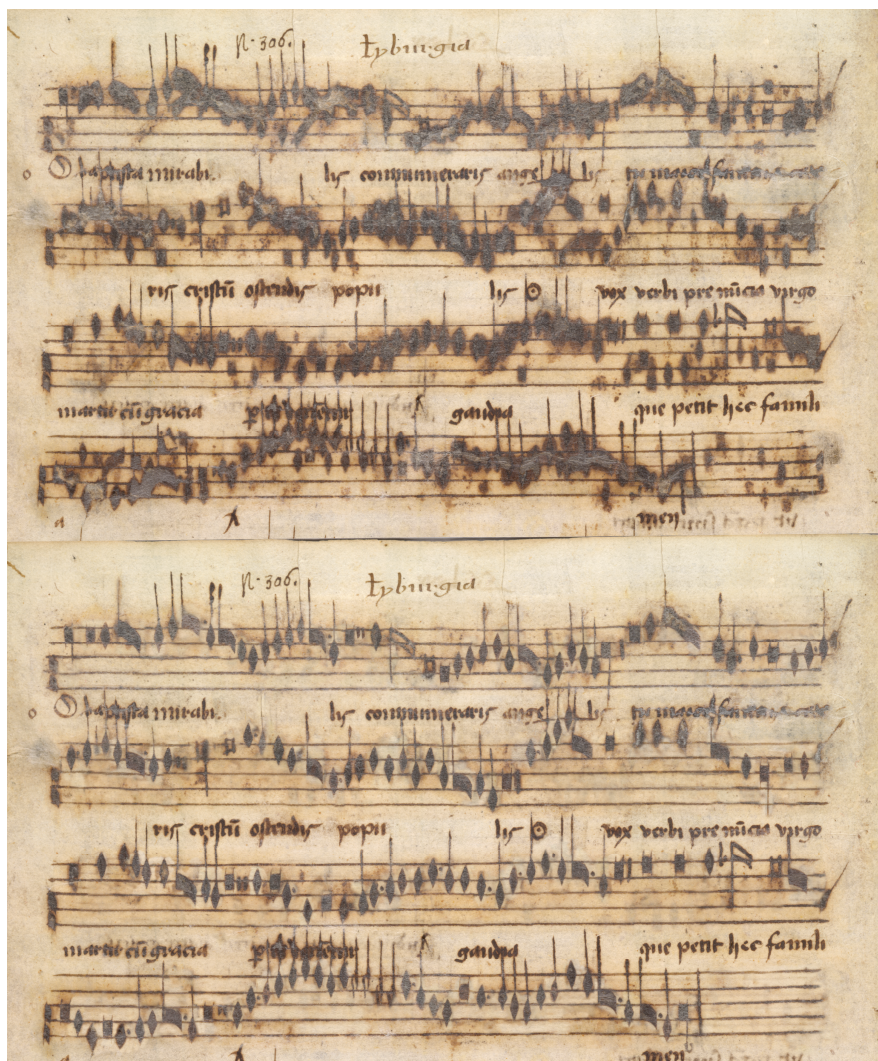 N. 306. tyburgia
O baptista mirabi lis connumeraris ange lis tu
ris cristū ostendis popu lis vox verbi prenūcia virgo
cū gracia gaudia que petit hec famili
a A men
N. 306. tyburgia
O baptista mirabi lis connumeraris ange lis tu
ris cristū ostendis popu lis vox verbi prenūcia virgo
cū gracia gaudia que petit hec famili
men